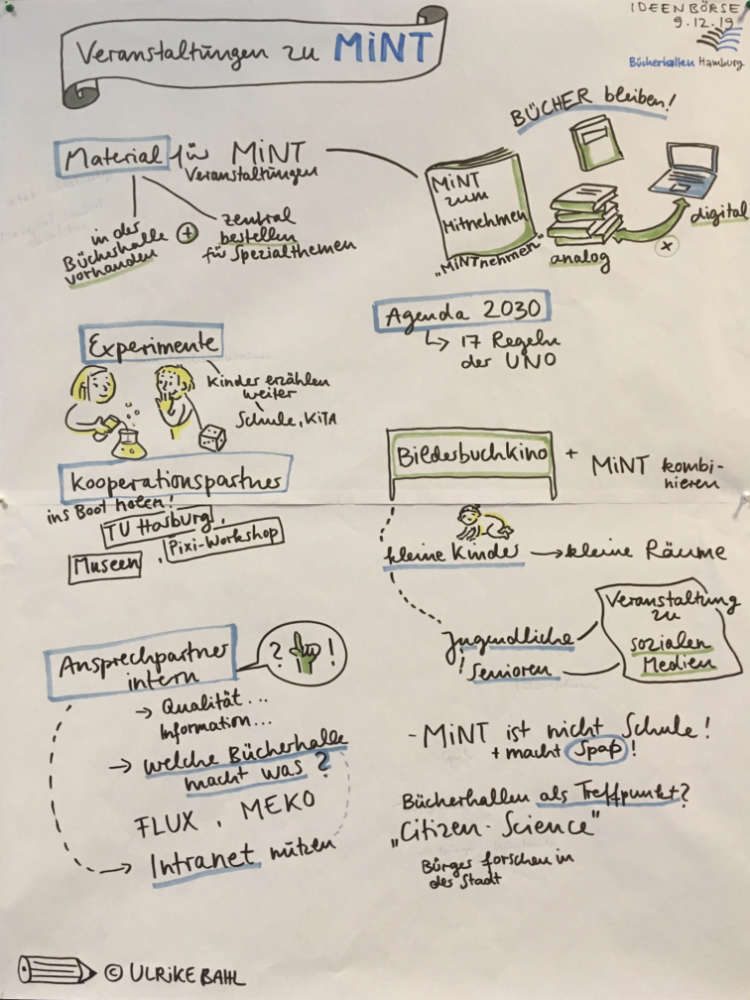 IDEENBÖRSE
9.12.19
Bücherhallen Hamburg
Veranstaltungen zu MiNT
BÜCHER bleiben!
Material für MiNT
Veranstaltungen
in der
Bücherhalle
vorhanden
+
zentral
bestellen
für Spezialthemen
MiNT
zum
Mitnehmen
„MiNTnehmen"
analog
digital
x
Agenda 2030
↳ 17 Regeln
der UNO
Experimente
Kinder erzählen
weiter
Schule, KiTA
Kooperationspartner
ins Boot holen!
TU Harburg,
Museen, Pixi-Workshop
Bilderbuchkino + MiNT kombi-
nieren
kleine Kinder → kleine Räume
Jugendliche
! Senioren
Veranstaltung
zu
sozialen
Medien
Ansprechpartner
intern
? !
→ Qualität...
Information...
→ welche Bücherhalle
macht was?
FLUX, MEKO
→ Intranet nützen
- MiNT ist nicht Schule!
+ macht Spaß!
Bücherhallen als Treffpunkt?
„Citizen-Science"
Bürger forschen in
der Stadt
© ULRiKE BAHL